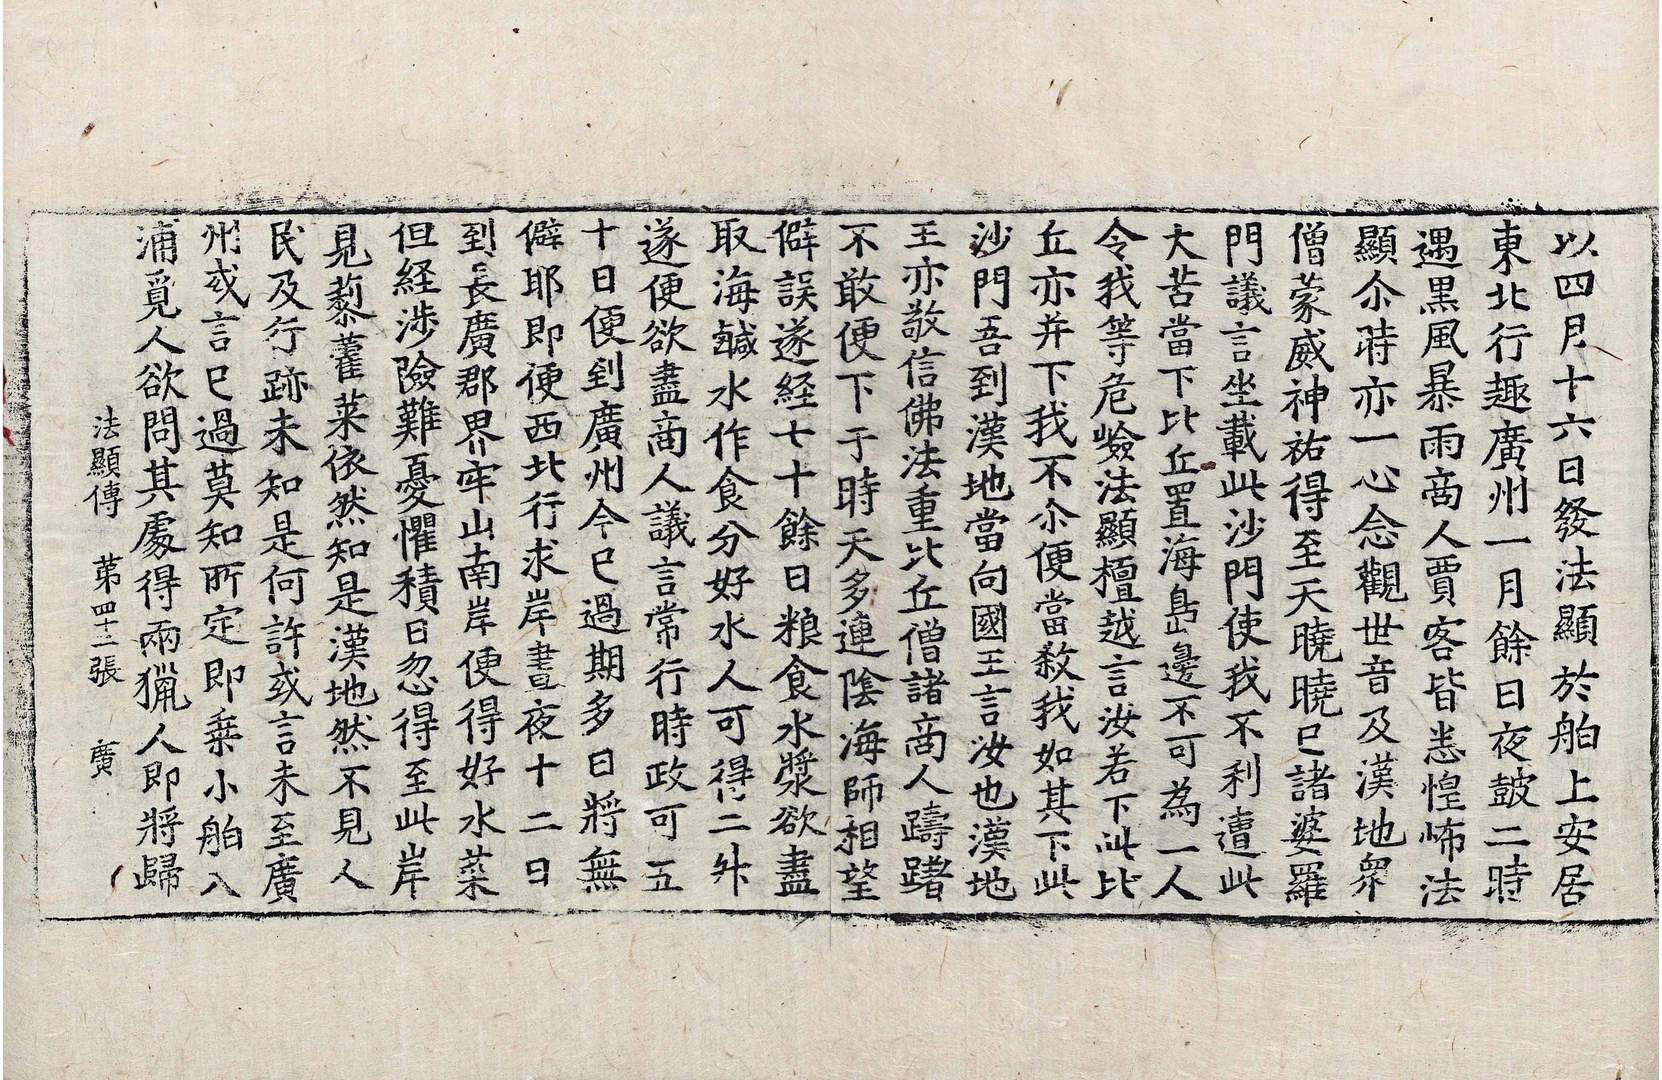 以四月十六日發法顯於舶上安居
東北行趣廣州一月餘日夜鼓二時
遇黑風暴雨啇人賈客皆悉惶怖法
顯尒時亦一心念觀世音及漢地衆
僧蒙威神祐得至天曉曉已諸婆羅
門議言坐載此沙門使我不利遭此
大苦當下比丘置海島邊不可為一人
令我等危嶮法顯檀越言汝若下此比
丘亦并下我不尒便當殺我如其下此
沙門吾到漢地當向國王言汝也漢地
王亦敬信佛法重比丘僧諸啇人躊躇
不敢便下于時天多連陰海師相望
僻誤遂経七十餘日粮食水漿欲盡
取海鹹水作食分好水人可得二升
遂便欲盡啇人議言常行時政可五
十日便到廣州今已過期多日將無
僻耶即便西北行求岸晝夜十二日
到長廣郡界牢山南岸便得好水菜
但経涉險難憂懼積日忽得至此岸
見藜藿菜依然知是漢地然不見人
民及行跡未知是何許或言未至廣
州或言已過莫知所定即乗小舶入
浦覓人欲問其處得兩獵人即將歸
法顯傳　苐四十二張　廣